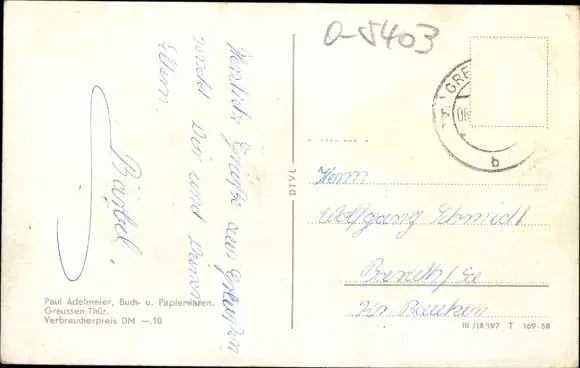 0-5403
GRE
08.
b
Herzliche Grüße aus Greußen
sendet Dir und Deinen
Eltern
Bärbel.
DTV L
Herrn
Wolfgang Schmidt
Kr. Bautzen
Paul Adelmeier, Buch- u. Papierwaren.
Greussen/Thür.
Verbraucherpreis DM —.10
III/18/197 T 169-58